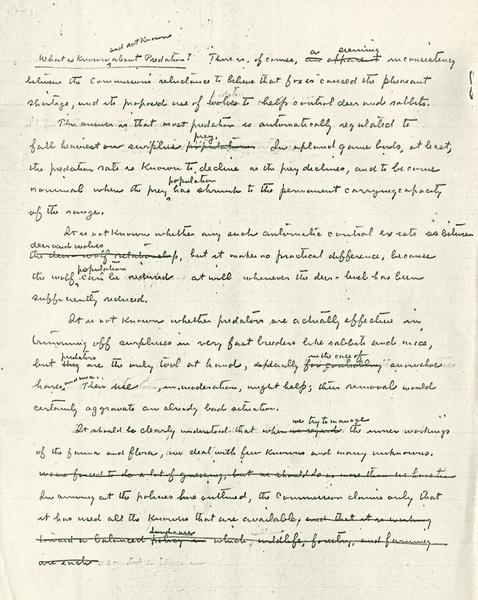 and not known
What is Known about Predators? There is, of course, a seeming inconsistency
between the Commission's reluctance to believe that foxes caused the pheasant
shortage, and its proposed use of wolves to help control deer and rabbits.
The answer is that most predation is automatically regulated to
prey.
fall heaviest on surplus population. In upland game birds, at least,
the predation rate is known to decline as the prey declines, and to become
population
nominal when the prey has shrunk to the permanent carrying capacity
of the range.
It is not known whether any such automatic control exists as between
deer and wolves
the deer-wolf relationship, but it makes no practical difference, because
population
the wolf can be at will whenever the deer-level has been
sufficiently reduced.
It is not known whether predators are actually effective in
trimming off surpluses in very fast breeders like rabbits and mice,
predators in the case of
but they are the only tool at hand, especially for controlling snowshoe
and mice.
hares. Their use, in moderation, might help; their removal would
certainly aggravate an already bad situation.
we try to manage
It should be clearly understood that when we regard the inner workings
of the fauna and flora, we deal with few knowns and many unknowns.
We are forced to do a lot of guessing, but we should do no more than we have to.
In arriving at the policies here outlined, the Commission claims only that
it has used all the knowns that are available, and that it is working
toward a balanced policy in which wildlife, forestry, and farming
are such